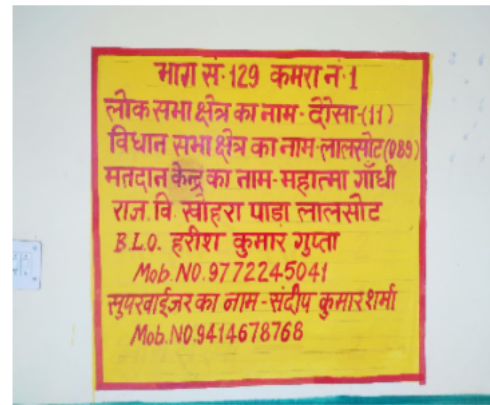 भाग सं. 129 कमरा नं. 1
लोक सभा क्षेत्र का नाम - दौसा-(11)
विधान सभा क्षेत्र का नाम-लालसोट(089)
मतदान केन्द्र का नाम-महात्मा गाँधी
राज. वि. खोहरा पाडा लालसोट
B.L.O. हरीश कुमार गुप्ता
Mob.NO.9772245041
सुपरवाईजर का नाम-संदीप कुमार शर्मा
Mob.NO.9414678768